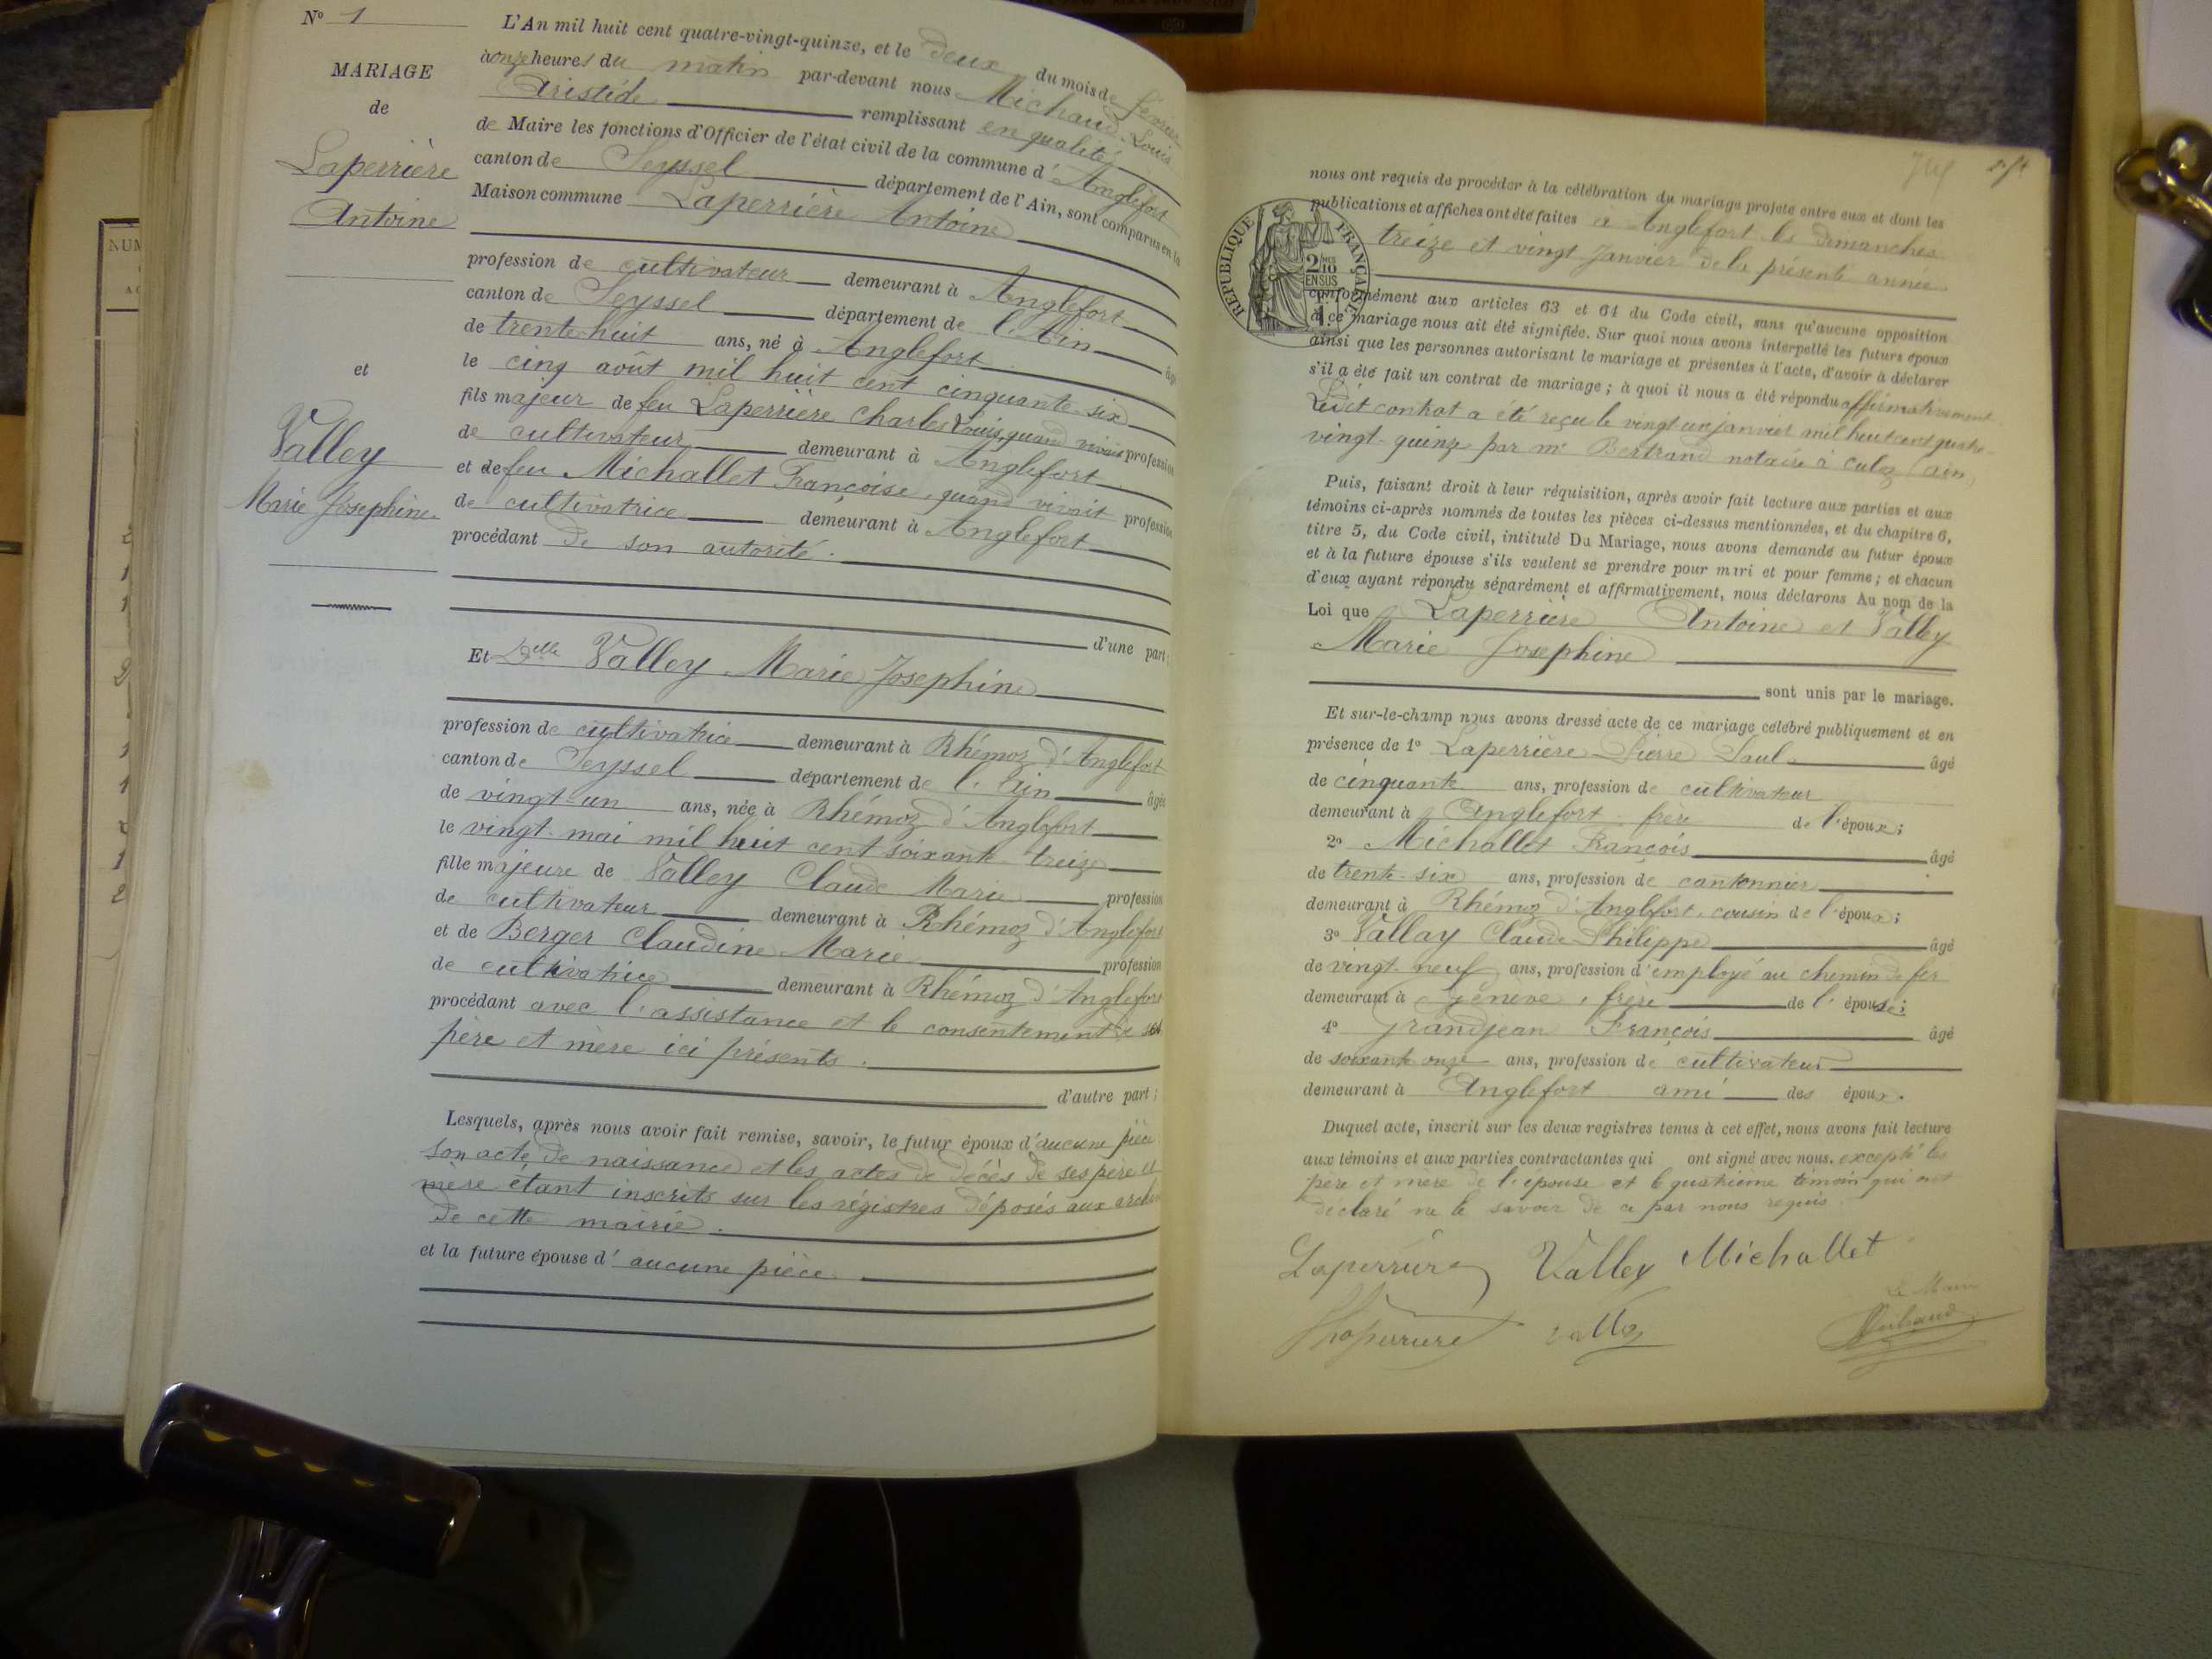 N° 1
MARIAGE
de
Laperrière
Antoine
et
Valley
Marie Josephine
L'An mil huit cent quatre-vingt-quinze, et le deux du mois de février
à onze heures du matin par-devant nous Michaud Louis
Aristide remplissant en qualité
de Maire les fonctions d'Officier de l'état civil de la commune d'Anglefort
canton de Seyssel département de l'Ain, sont comparus en la
Maison commune Laperrière Antoine
profession de cultivateur demeurant à Anglefort
canton de Seyssel département de l'Ain âgé
de trente-huit ans, né à Anglefort
le cinq août mil huit cent cinquante-six
fils majeur de feu Laperrière Charles Louis, quand vivait profession
de cultivateur demeurant à Anglefort
et de feu Michallet Françoise, quand vivait profession
de cultivatrice demeurant à Anglefort
procédant de son autorité.
d'une part;
Et Delle Valley Marie Josephine
profession de cultivatrice demeurant à Rhémoz d'Anglefort
canton de Seyssel département de l'Ain âgée
de vingt-un ans, née à Rhémoz d'Anglefort
le vingt mai mil huit cent soixante-treize
fille majeure de Valley Claude Marie profession
de cultivateur demeurant à Rhémoz d'Anglefort
et de Berger Claudine Marie profession
de cultivatrice demeurant à Rhémoz d'Anglefort
procédant avec l'assistance et le consentement de ses
père et mère ici présents.
d'autre part;
Lesquels, après nous avoir fait remise, savoir, le futur époux d'aucune pièce
son acte de naissance et les actes de décès de ses père et
mère étant inscrits sur les régistres déposés aux
de cette mairie.
et la future épouse d'aucune pièce
nous ont requis de procéder à la célébration du mariage projeté entre eux et dont les
publications et affiches ont été faites à Anglefort les dimanches
treize et vingt Janvier de la présente année
RÉPUBLIQUE FRANÇAISE
2/10 EN SUS
conformément aux articles 63 et 64 du Code civil, sans qu'aucune opposition
à ce mariage nous ait été signifiée. Sur quoi nous avons interpellé les futurs époux
ainsi que les personnes autorisant le mariage et présentes à l'acte, d'avoir à déclarer
s'il a été fait un contrat de mariage; à quoi il nous a été répondu affirmativement
Ledit contrat a été reçu le vingt un janvier mil huit cent quatre-
vingt-quinze par me Bertrand notaire à Culoz (ain)
Puis, faisant droit à leur réquisition, après avoir fait lecture aux parties et aux
témoins ci-après nommés de toutes les pièces ci-dessus mentionnées, et du chapitre 6,
titre 5, du Code civil, intitulé Du Mariage, nous avons demandé au futur époux
et à la future épouse s'ils veulent se prendre pour mari et pour femme; et chacun
d'eux ayant répondu séparément et affirmativement, nous déclarons Au nom de la
Loi que Laperrière Antoine et Valley
Marie Josephine
sont unis par le mariage.
Et sur-le-champ nous avons dressé acte de ce mariage célébré publiquement et en
présence de 1° Laperrière Pierre Paul âgé
de cinquante ans, profession de cultivateur
demeurant à Anglefort frère de l'époux;
2° Michallet François âgé
de trente-six ans, profession de cantonnier
demeurant à Rhémoz d'Anglefort, cousin de l'époux;
3° Vallay Claude Philippe âgé
de vingt-neuf ans, profession d'employé au chemin de fer
demeurant à Genève, frère de l'épouse;
4° Grandjean François âgé
de soixante onze ans, profession de cultivateur
demeurant à Anglefort ami des époux.
Duquel acte, inscrit sur les deux registres tenus à cet effet, nous avons fait lecture
aux témoins et aux parties contractantes qui ont signé avec nous, excepté les
père et mère de l'épouse et le quatrième témoin qui ont
déclaré ne le savoir de ce par nous requis
Laperrière Valley Michallet
Le Maire
Laperrière Valley Michaud